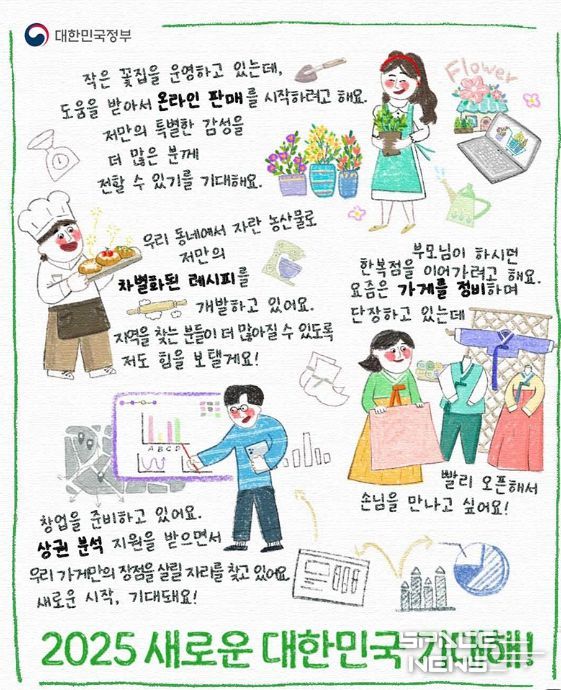 대한민국정부
작은 꽃집을 운영하고 있는데,
도움을 받아서 온라인 판매를 시작하려고 해요.
저만의 특별한 감성을
더 많은 분께
전할 수 있기를 기대해요.
Flower
우리 동네에서 자란 농산물로
저만의
차별화된 레시피를
개발하고 있어요.
지역을 찾는 분들이 더 많아질 수 있도록
저도 힘을 보탤게요!
부모님이 하시던
한복점을 이어가려고 해요.
요즘은 가게를 정비하며
단장하고 있는데
빨리 오픈해서
손님을 만나고 싶어요!
A B C D
창업을 준비하고 있어요.
상권 분석 지원을 받으면서
우리 가게만의 장점을 살릴 자리를 찾고 있어요
새로운 시작, 기대돼요!
2025 새로운 대한민국
NEWS